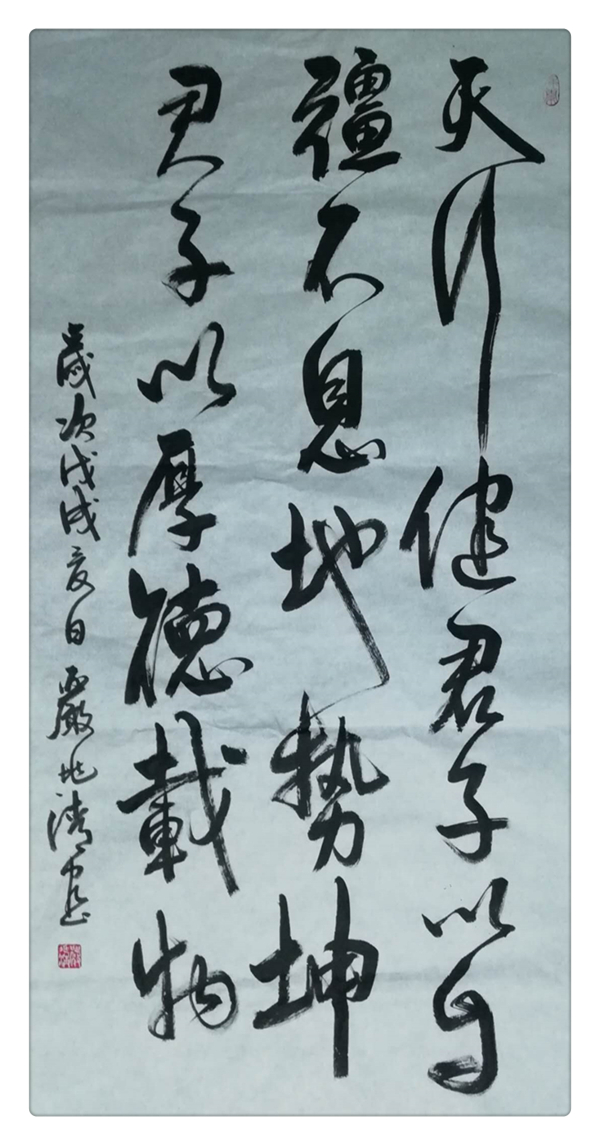 天行健君子以自
彊不息地势坤
君子以厚德載物
歲次戊戌夏日嚴兆清